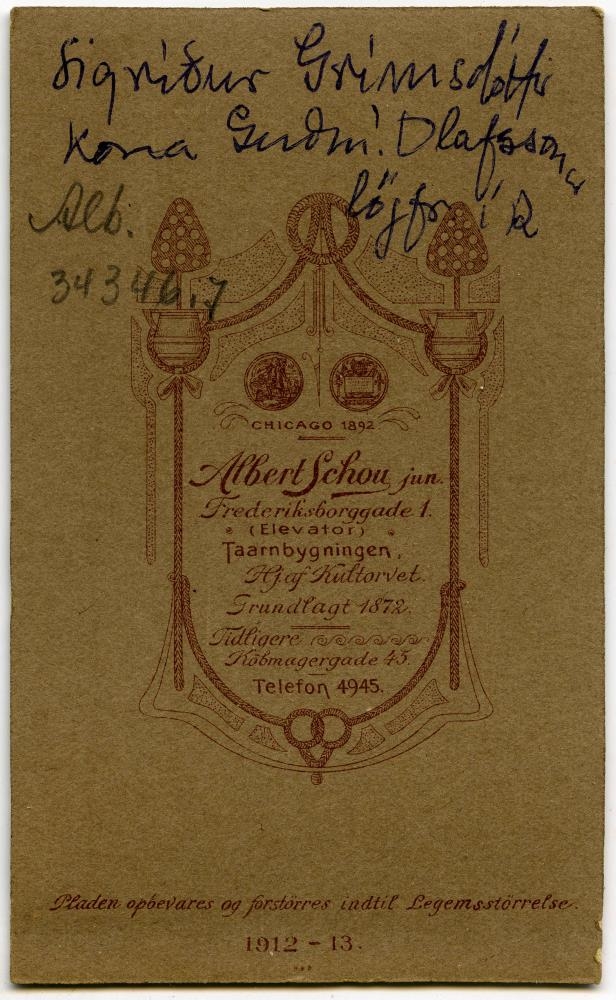 Sigríður Grímsdóttir
kona Guðm. Olafssonar
lögfr í R
Alb.
34346,7
CHICAGO 1892
Albert Schou jun.
Frederiksborggade 1.
(Elevator)
Taarnbygningen,
Hj. af Kultorvet.
Grundlagt 1872.
Tidligere
Købmagergade 45.
Telefon 4945.
Pladen opbevares og forstørres indtil Legemsstørrelse.
1912 - 13.